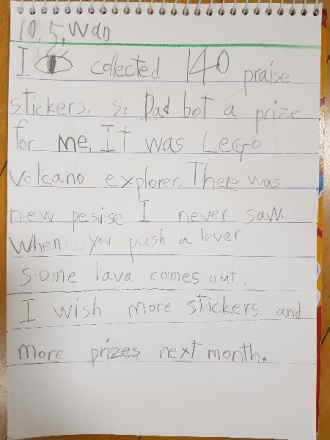 10, 5, Wdn
I collected 140 praise
stickers. so Dad bot a prize
for me. It was Lego
Volcano explorer. There was
new pesise I never saw.
When you push a lever
some lava comes out.
I wish more stickers and
more prizes next month.